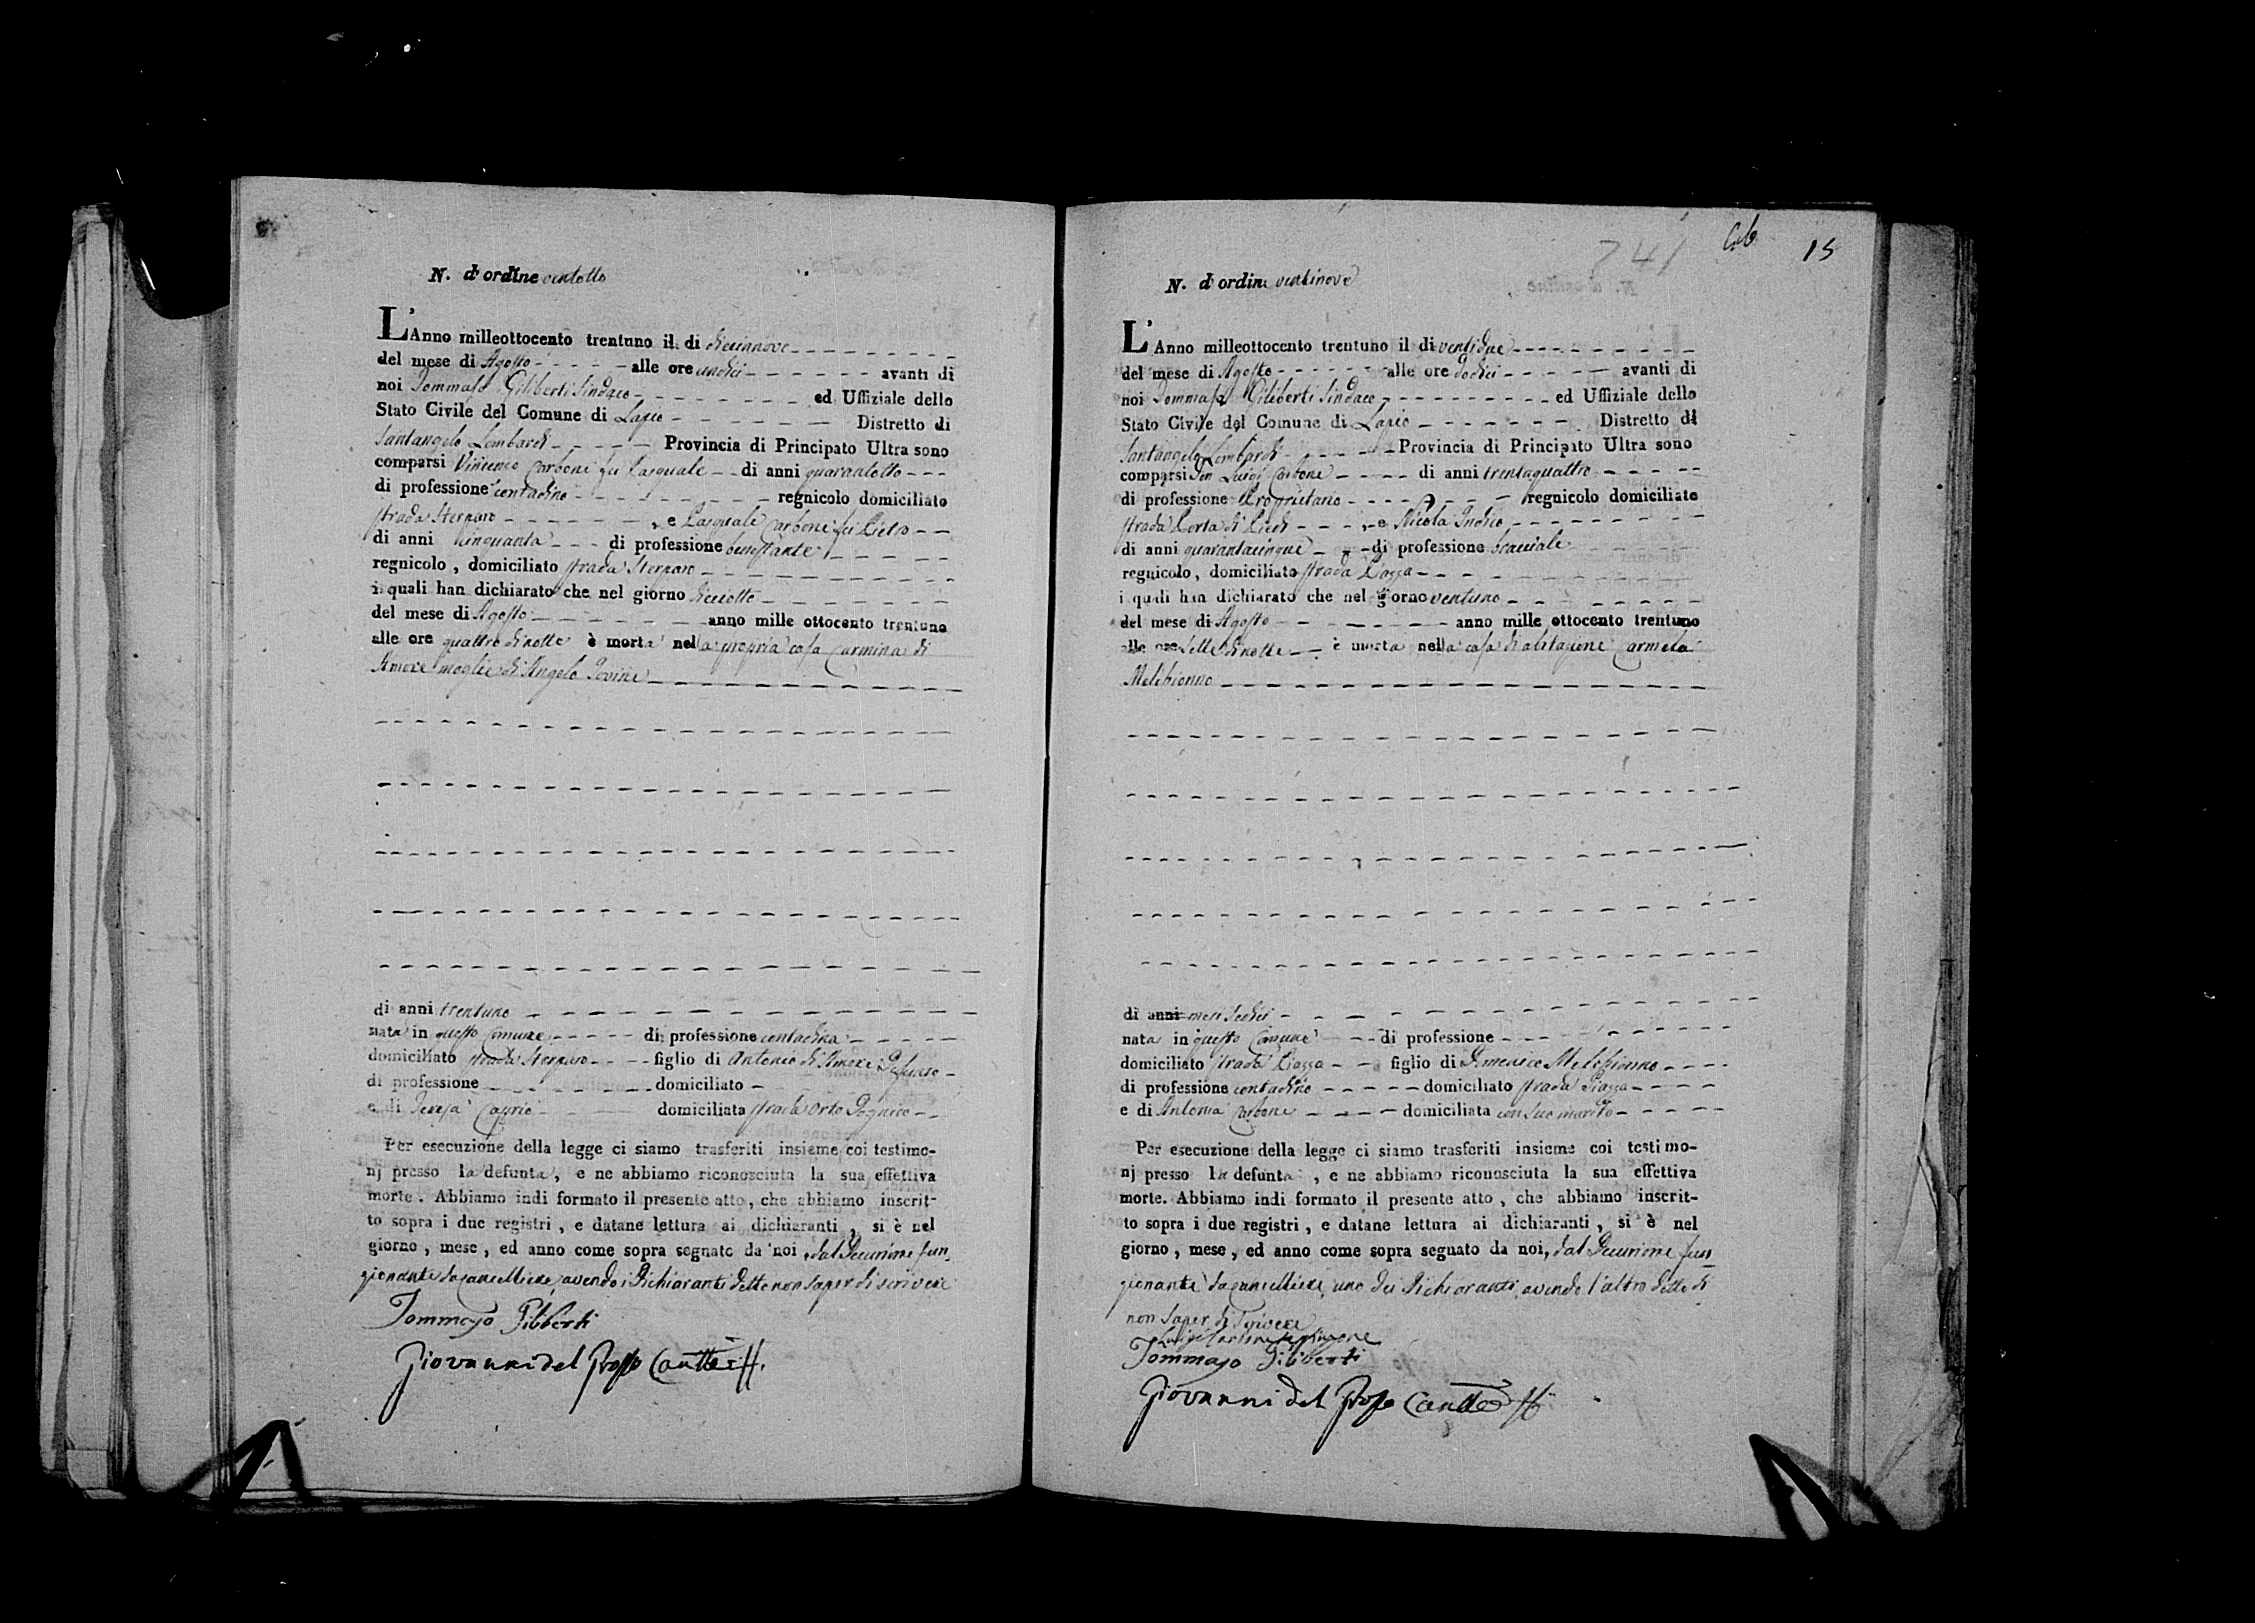 N. d'ordine ventotto
L'Anno milleottocento trentuno il di diecinnove
del mese di Agosto alle ore undici avanti di
noi Tommaso Giliberti Sindaco ed Uffiziale dello
Stato Civile del Comune di Lapio Distretto di
Santangelo Lombardi Provincia di Principato Ultra sono
comparsi Vincenzo Carbone fu Pasquale di anni quarantotto
di professione contadino regnicolo domiciliato
strada Sterparo , e Pasquale Carbone fu Pietro
di anni cinquanta di professione benestante
regnicolo , domiciliato strada Sterparo
i quali han dichiarato che nel giorno dieciotto
del mese di Agosto anno mille ottocento trentuno
alle ore quattro di notte è morta nella propria casa Carmina di
Amore moglie di Angelo Iovine
di anni trentuno
nata in questo Comune di professione contadina
domiciliato strada Sterparo figlio di Antonio di Amore Defunto
di professione domiciliato
e di Teresa Caprio domiciliata strada Orto
Per esecuzione della legge ci siamo trasferiti insieme coi testimo-
nj presso la defunta , e ne abbiamo riconosciuta la sua effettiva
morte . Abbiamo indi formato il presente atto , che abbiamo inscrit-
to sopra i due registri , e datane lettura ai dichiaranti , si è nel
giorno , mese , ed anno come sopra segnato da noi , dal Decurione fun
zionante da cancelliere, avendo i Dichiaranti detto non saper di scrivere
Tommaso Giliberti
Giovanni del Grosso
Cab 15
741
N. d'ordine ventinove
L'Anno milleottocento trentuno il di ventidue
del mese di Agosto alle ore dodici avanti di
noi Tommaso Giliberti Sindaco ed Uffiziale dello
Stato Civile del Comune di Lapio Distretto di
Santangelo Lombardi Provincia di Principato Ultra sono
comparsi Don Luigi Carbone di anni trentaquattro
di professione Proprietario regnicolo domiciliato
strada Porta di Piedi , e Nicola Indico
di anni quarantacinque di professione bracciale
regnicolo , domiciliato strada Piazza
i quali han dichiarato che nel giorno ventuno
del mese di Agosto anno mille ottocento trentuno
alle ore sette di notte è morta nella casa di abitazione Carmela
Melchionno
di anni mesi sedici
nata in questo Comune di professione
domiciliato strada Piazza figlio di Domenico Melchionno
di professione contadino domiciliato strada Piazza
e di Antonia Carbone domiciliata con suo marito
Per esecuzione della legge ci siamo trasferiti insieme coi testimo-
nj presso la defunta , e ne abbiamo riconosciuta la sua effettiva
morte. Abbiamo indi formato il presente atto , che abbiamo inscrit-
to sopra i due registri , e datane lettura ai dichiaranti , si è nel
giorno , mese , ed anno come sopra segnato da noi, dal Decurione fun
zionante da cancelliere, uno dei Dichiaranti, avendo l'altro detto di
non saper di scrivere
Luigi Carbone
Tommaso Giliberti
Giovanni del Grosso